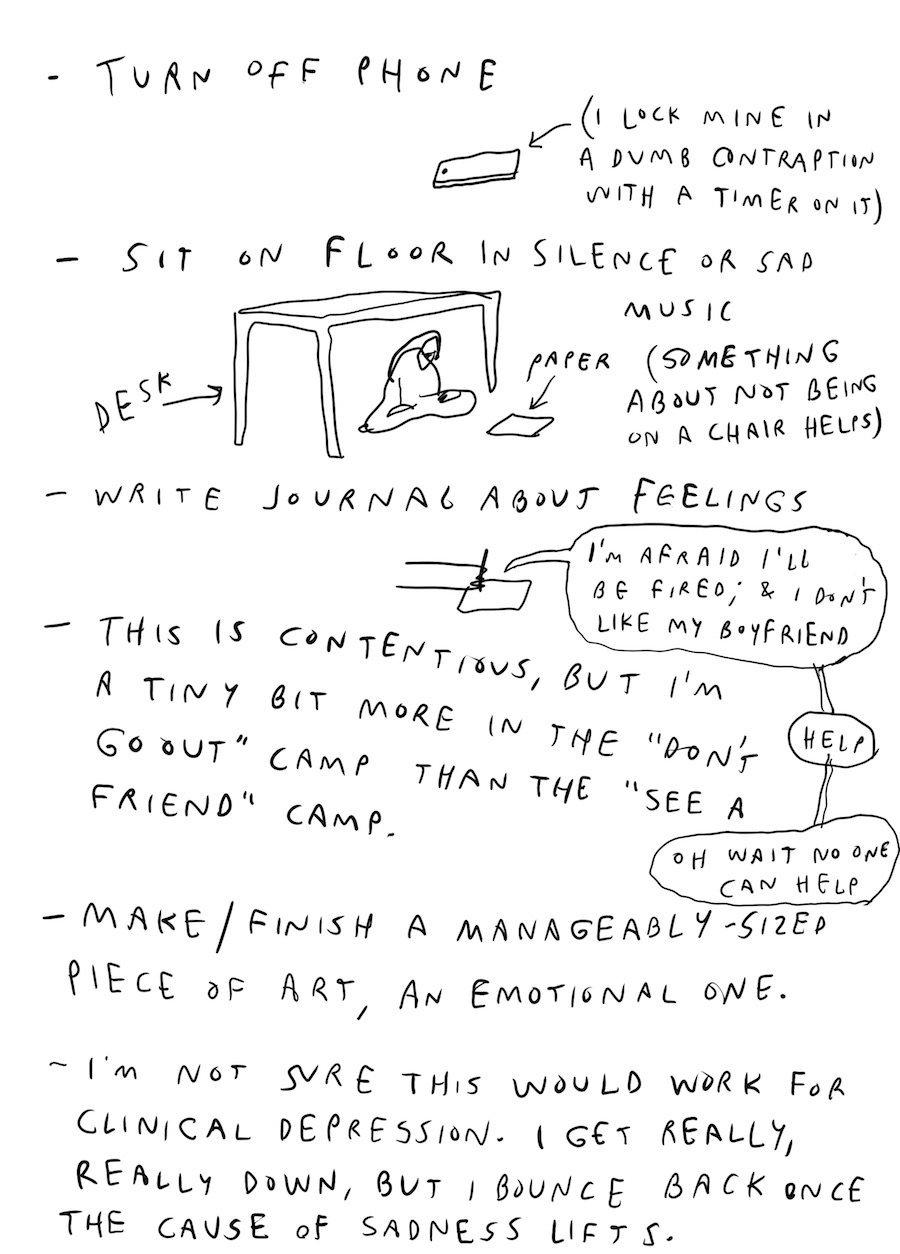 - TURN OFF PHONE
(I LOCK MINE IN
A DUMB CONTRAPTION
WITH A TIMER ON IT)
- SIT ON FLOOR IN SILENCE OR SAD
MUSIC
(SOMETHING
ABOUT NOT BEING
ON A CHAIR HELPS)
DESK
PAPER
- WRITE JOURNAL ABOUT FEELINGS
I'M AFRAID I'LL
BE FIRED; & I DON'T
LIKE MY BOYFRIEND
HELP
OH WAIT NO ONE
CAN HELP
- THIS IS CONTENTIOUS, BUT I'M
A TINY BIT MORE IN THE "DON'T
GO OUT" CAMP THAN THE "SEE A
FRIEND" CAMP.
- MAKE/FINISH A MANAGEABLY-SIZED
PIECE OF ART, AN EMOTIONAL ONE.
- I'M NOT SURE THIS WOULD WORK FOR
CLINICAL DEPRESSION. I GET REALLY,
REALLY DOWN, BUT I BOUNCE BACK ONCE
THE CAUSE OF SADNESS LIFTS.